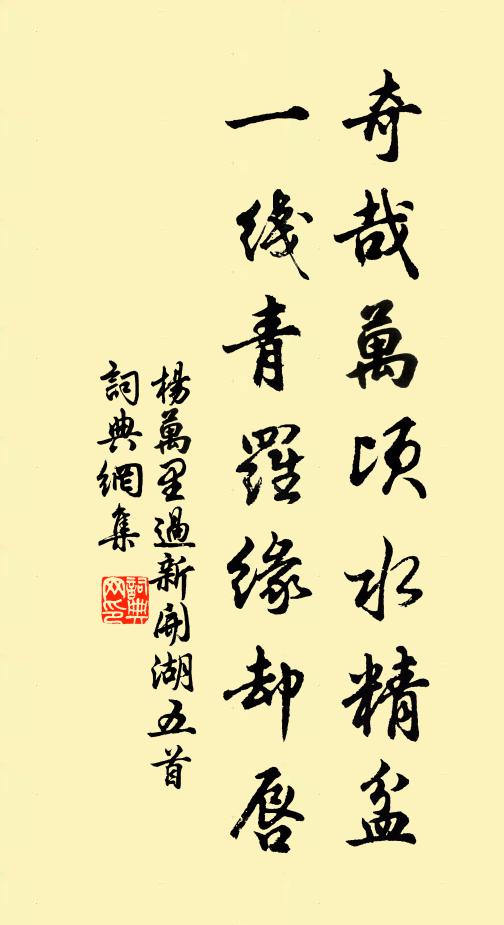 奇哉萬頃水精盆
一綫青羅緣却唇
楊萬里過新開湖五首
詞典網集
詞典网印